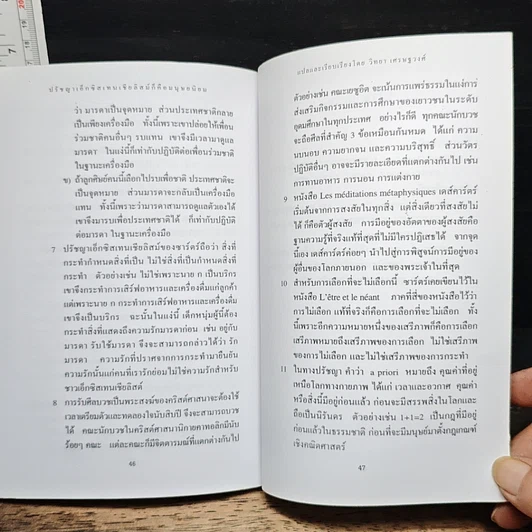 ปรัชญาเอ็กซิสเทนเชียลิสม์ก็คือมนุษยนิยม
ว่า มารดาเป็นจุดหมาย ส่วนประเทศชาติกลาย
เป็นเพียงเครื่องมือ ทั้งนี้เพราะเขาปล่อยให้เพื่อน
ร่วมชาติคนอื่นๆ รบแทน เขาจึงมีเวลามาดูแล
มารดา ในแง่นี้ก็เท่ากับปฏิบัติต่อเพื่อนร่วมชาติ
ในฐานะเครื่องมือ
ข) ถ้าลูกศิษย์คนนี้เลือกไปรบเพื่อชาติ ประเทศชาติจะ
เป็นจุดหมาย ส่วนมารดาจะกลับเป็นเครื่องมือ
แทน ทั้งนี้เพราะว่ามารดาสามารถดูแลตัวเองได้
เขาจึงมารบเพื่อประเทศชาติได้ ก็เท่ากับปฏิบัติ
ต่อมารดา ในฐานะเครื่องมือ
7 ปรัชญาเอ็กซิสเทนเชียลิสม์ของซาร์ตร์ถือว่า สิ่งที่
กระทำกำหนดสิ่งที่เป็น ไม่ใช่สิ่งที่เป็นกำหนดสิ่งที่
กระทำ ตัวอย่างเช่น ไม่ใช่เพราะนาย ก เป็นบริกร
เขาจึงกระทำการเสิร์ฟอาหารและเครื่องดื่มแก่ลูกค้า
แต่เพราะนาย ก กระทำการเสิร์ฟอาหารและเครื่องดื่ม
เขาจึงเป็นบริกร ฉะนั้นในแง่นี้ เด็กหนุ่มผู้นี้ต้อง
กระทำสิ่งที่แสดงถึงความรักมารดาก่อน เช่น อยู่กับ
มารดา รับใช้มารดา จึงจะสามารถกล่าวได้ว่า รัก
มารดา ความรักที่ปราศจากการกระทำมายืนยัน
ความรักนั้นแค่คนที่เรารักย่อมไม่ใช่ความรักสำหรับ
ชาวเอ็กซิสเทนเชียลิสต์
8 การรับศีลบวชเป็นพระสงฆ์ของคริสต์ศาสนาจะต้องใช้
เวลาเตรียมตัวและทดลองใจนับสิบปี จึงจะสามารถบวช
ได้ คณะนักบวชในคริสต์ศาสนานิกายคาทอลิกมีนับ
ร้อยๆ คณะ แต่ละคณะก็มีจิตตารมณ์ที่แตกต่างกันไป
46
แปลและเรียบเรียงโดย วิทยา เศรษฐวงศ์
ตัวอย่างเช่น คณะเยซูอิต จะเน้นการแพร่ธรรมในแง่การ
ส่งเสริมกิจกรรมและการศึกษาของเยาวชนในระดับ
อุดมศึกษาในทุกประเทศ อย่างไรก็ดี ทุกคณะนักบวช
จะถือศีลที่สำคัญ 3 ข้อเหมือนกันหมด ได้แก่ ความ
นบนอบ ความยากจน และความบริสุทธิ์ ส่วนวัตร
ปฏิบัติอื่นๆ อาจจะมีรายละเอียดที่แตกต่างกันไป เช่น
การทานอาหาร การนอน การแต่งกาย
9 หนังสือ Les méditations métaphysiques เดส์คาร์ตส์
เริ่มต้นจากการสงสัยในทุกสิ่ง แต่สิ่งเดียวที่สงสัยไม่
ได้ ก็คือตัวผู้สงสัย การมีอยู่ของอัตตาของผู้สงสัยคือ
ฐานความรู้ที่จริงแท้ที่สุดที่ไม่มีใครปฏิเสธได้ จากจุด
นี้เอง เดส์คาร์ตส์ค่อยๆ นำไปสู่การพิสูจน์การมีอยู่ของ
ผู้อื่นของโลกภายนอก และของพระเจ้าในที่สุด
10 สำหรับการเลือกที่จะไม่เลือก ซาร์ตร์เคยเขียนไว้ใน
หนังสือ L'être et le néant ภาคที่สี่ของหนังสือไว้ว่า
การไม่เลือก แท้ที่จริงก็คือการเลือกที่จะไม่เลือก ทั้ง
นี้เพราะอีกความหมายหนึ่งของเสรีภาพก็คือการเลือก
เสรีภาพหมายถึงเสรีภาพของการเลือก ไม่ใช่เสรีภาพ
ของการไม่เลือก และไม่ใช่เสรีภาพจากการกระทำ
11 ในทางปรัชญา คำว่า a priori หมายถึง คุณค่าที่อยู่
เหนือโลกทางกายภาพ ได้แก่ เวลาและอวกาศ คุณค่า
หรือสิ่งนี้มีอยู่ก่อนแล้ว ก่อนจะมีสรรพสิ่งในโลกและ
ถือเป็นนิรันดร ตัวอย่างเช่น 1+1=2 เป็นกฎที่มีอยู่
ก่อนแล้วในธรรมชาติ ก่อนที่จะมีมนุษย์มาตั้งกฎเกณฑ์
เชิงคณิตศาสตร์
47